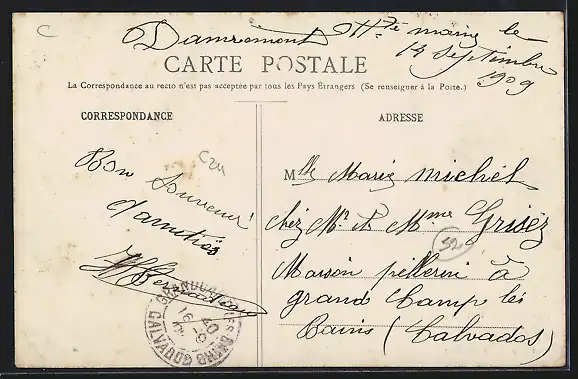 C
Damremont Hte marne le
14 septembre
1909
CARTE POSTALE
La Correspondance au recto n'est pas acceptée par tous les Pays Étrangers (Se renseigner à la Poste.)
CORRESPONDANCE
ADRESSE
C24
Bon souvenir
d'amitiés
Mlle Marie Michel
chez Mr et Mme Grisez
52
Maison pellerin à
grand Camp les
Bains (Calvados)
GRANDCAMP-LES-BAINS
16 -9
CALVADOS